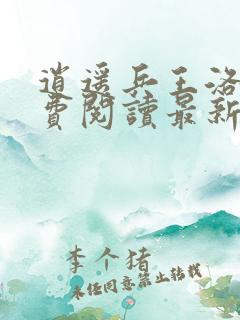 逍遥兵王洛
费阅读最新
李个猪
未经同意禁止转载